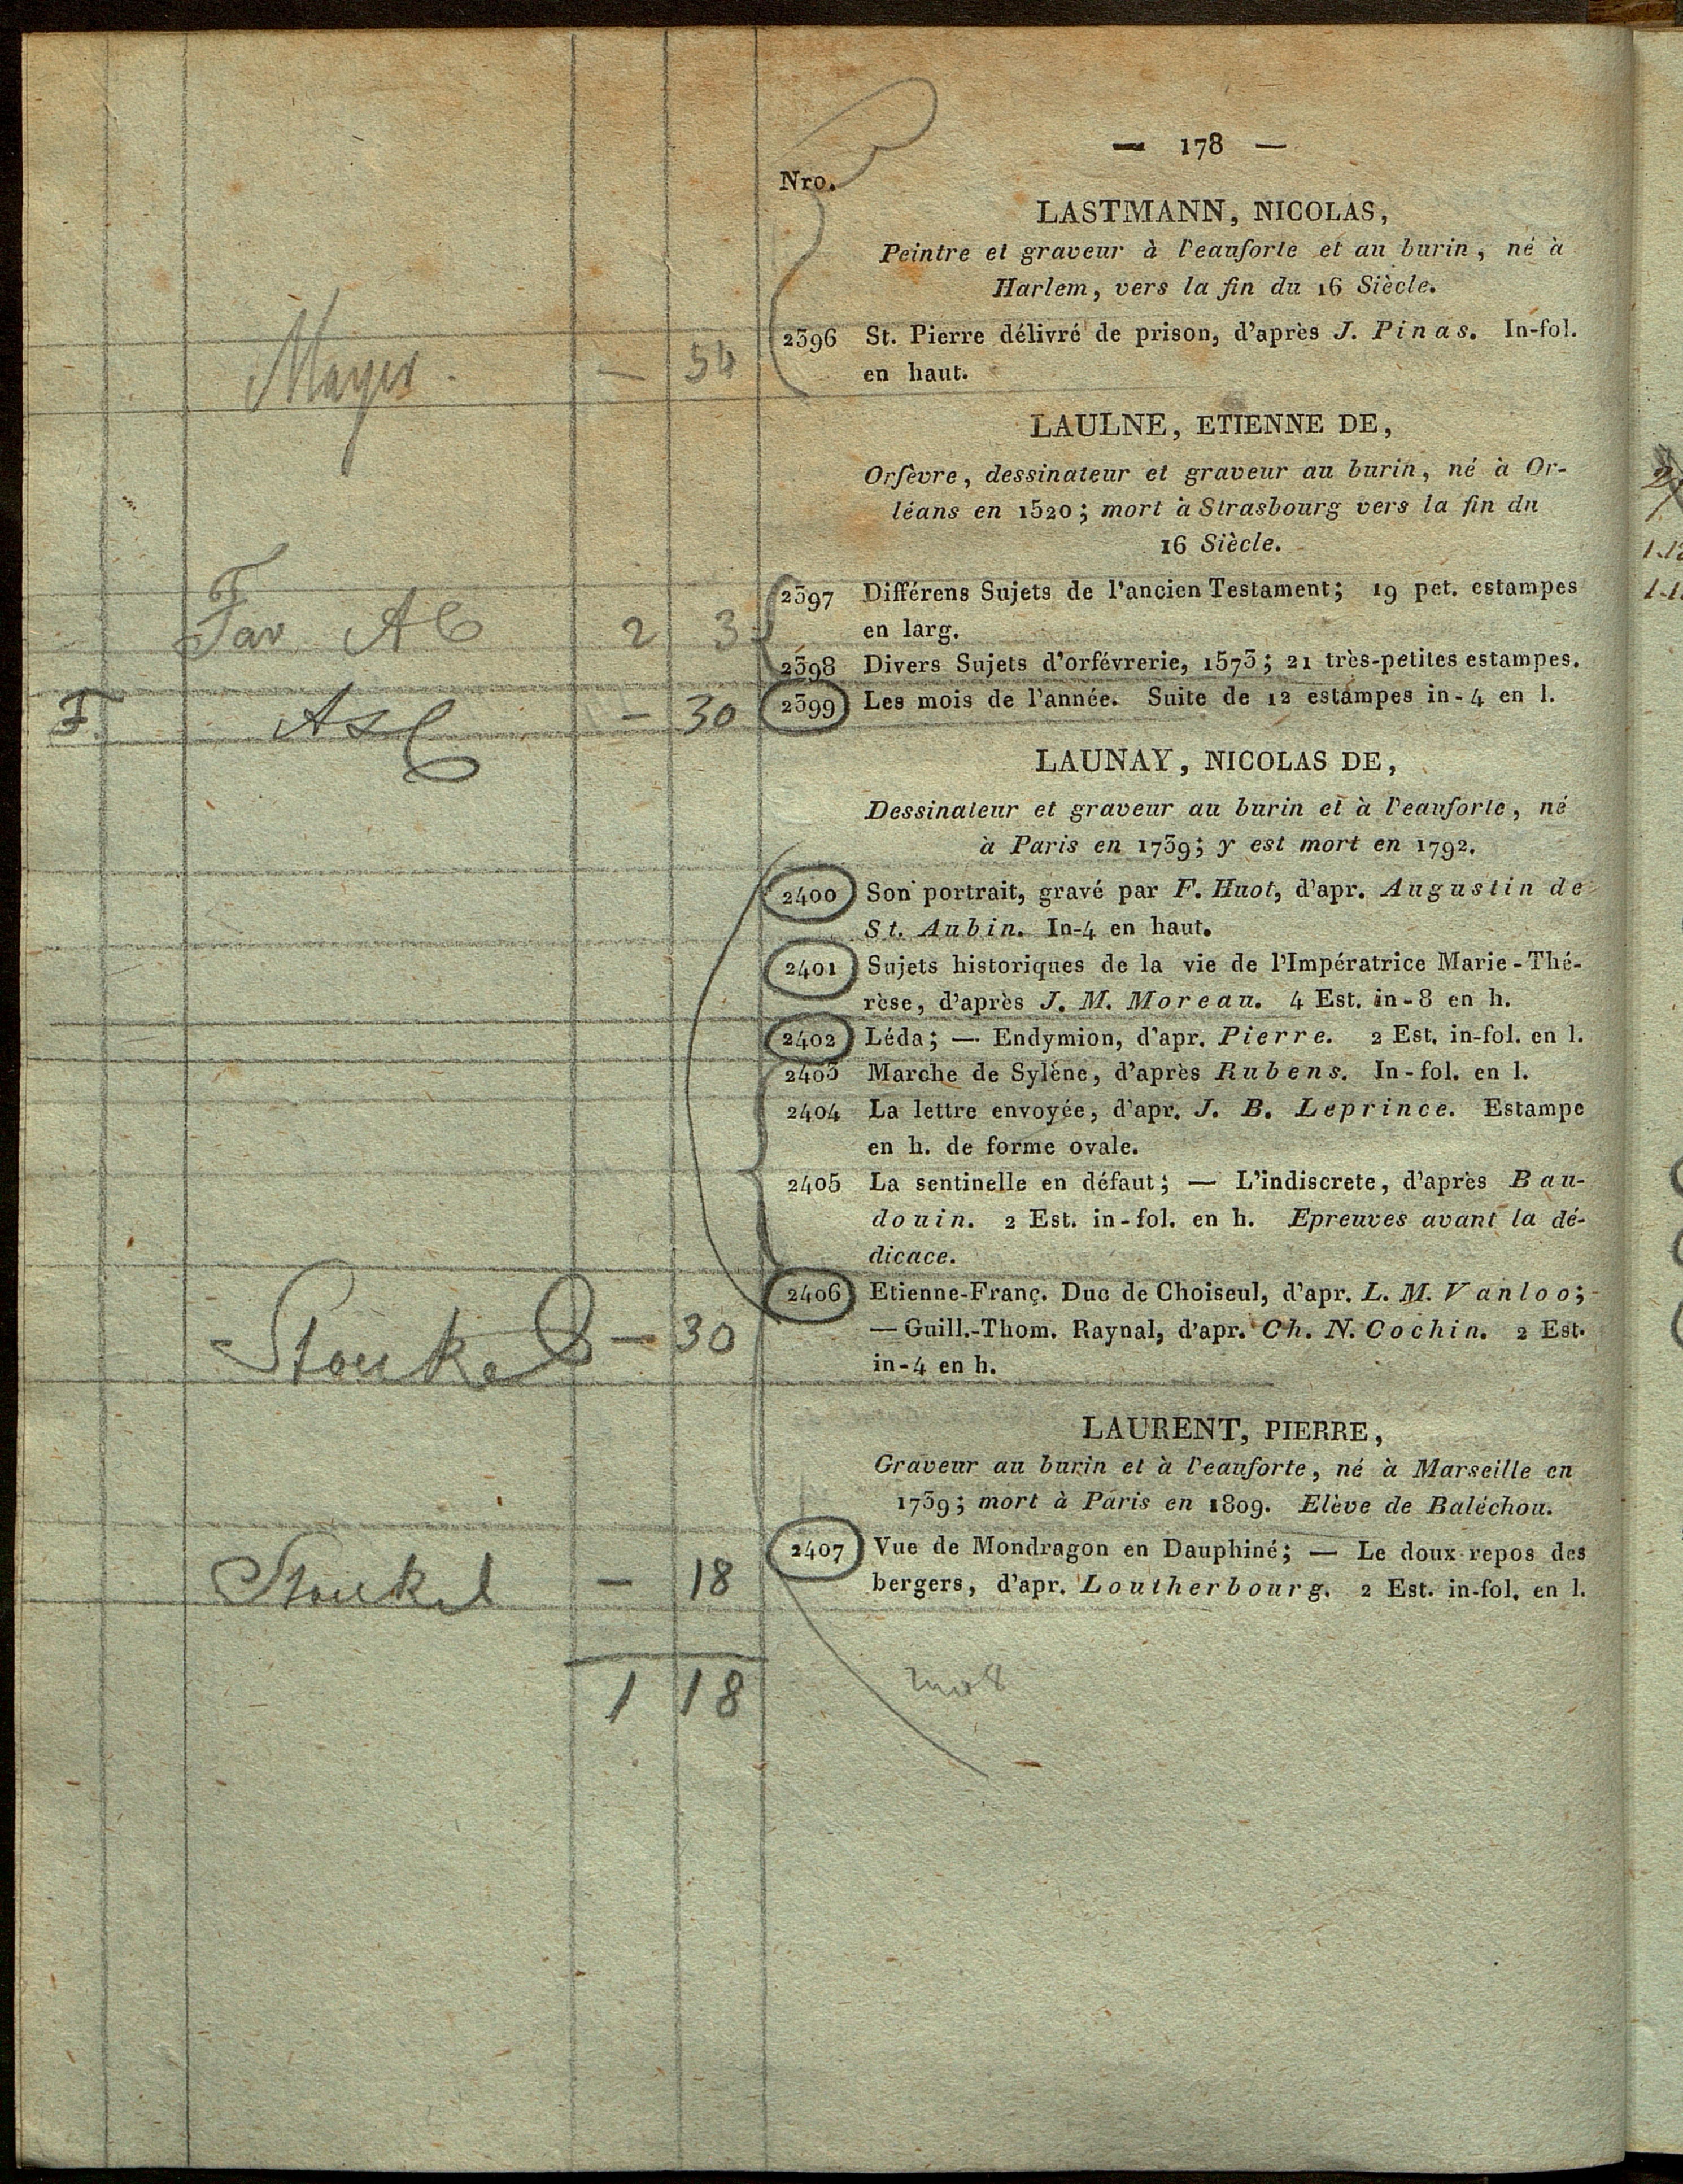 — 178 —
Nro.
LASTMANN, NICOLAS,
Peintre et graveur à l'eauforte et au burin, né à
Harlem, vers la fin du 16 Siècle.
2396 St. Pierre délivré de prison, d'après J. Pinas. In-fol.
en haut.
Mayer. — 54
LAULNE, ETIENNE DE,
Orfèvre, dessinateur et graveur au burin, né à Or-
léans en 1520; mort à Strasbourg vers la fin du
16 Siècle.
2397 Différens Sujets de l'ancien Testament; 19 pet. estampes
en larg.
2 3
2398 Divers Sujets d'orfévrerie, 1573; 21 très-petites estampes.
F. — 30 2399 Les mois de l'année. Suite de 12 estampes in-4 en l.
LAUNAY, NICOLAS DE,
Dessinateur et graveur au burin et à l'eauforte, né
à Paris en 1739; y est mort en 1792.
2400 Son portrait, gravé par F. Huot, d'apr. Augustin de
St. Aubin. In-4 en haut.
2401 Sujets historiques de la vie de l'Impératrice Marie-Thé-
rèse, d'après J. M. Moreau. 4 Est. in-8 en h.
2402 Léda; — Endymion, d'apr. Pierre. 2 Est. in-fol. en l.
2403 Marche de Sylène, d'après Rubens. In-fol. en l.
2404 La lettre envoyée, d'apr. J. B. Leprince. Estampe
en h. de forme ovale.
2405 La sentinelle en défaut; — L'indiscrete, d'après Bau-
douin. 2 Est. in-fol. en h. Epreuves avant la dé-
dicace.
2406 Etienne-Franç. Duc de Choiseul, d'apr. L. M. Vanloo;
— Guill.-Thom. Raynal, d'apr. Ch. N. Cochin. 2 Est.
in-4 en h.
Stoukel — 30
LAURENT, PIERRE,
Graveur au burin et à l'eauforte, né à Marseille en
1739; mort à Paris en 1809. Elève de Baléchou.
2407 Vue de Mondragon en Dauphiné; — Le doux repos des
bergers, d'apr. Loutherbourg. 2 Est. in-fol. en l.
Stoukel — 18
1 18